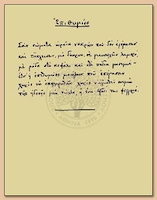 Ἐπιθυμίες
Σὰν σώματα ὡραῖα νεκρῶν ποὺ δὲν ἐγέρασαν
καὶ τἄκλεισαν, μὲ δάκρυα, σὲ μαυσωλεῖο λαμπρό,
μὲ ρόδα στὸ κεφάλι καὶ στὰ πόδια γιασεμιὰ —
ἔτσι ἡ ἐπιθυμίες μοιάζουν ποὺ ἐπέρασαν
χωρὶς νὰ ἐκπληρωθοῦν· χωρὶς ν' ἀξιωθεῖ καμιὰ
τῆς ἡδονῆς μιὰ νύχτα, ἢ ἕνα πρωΐ της φεγγερό.